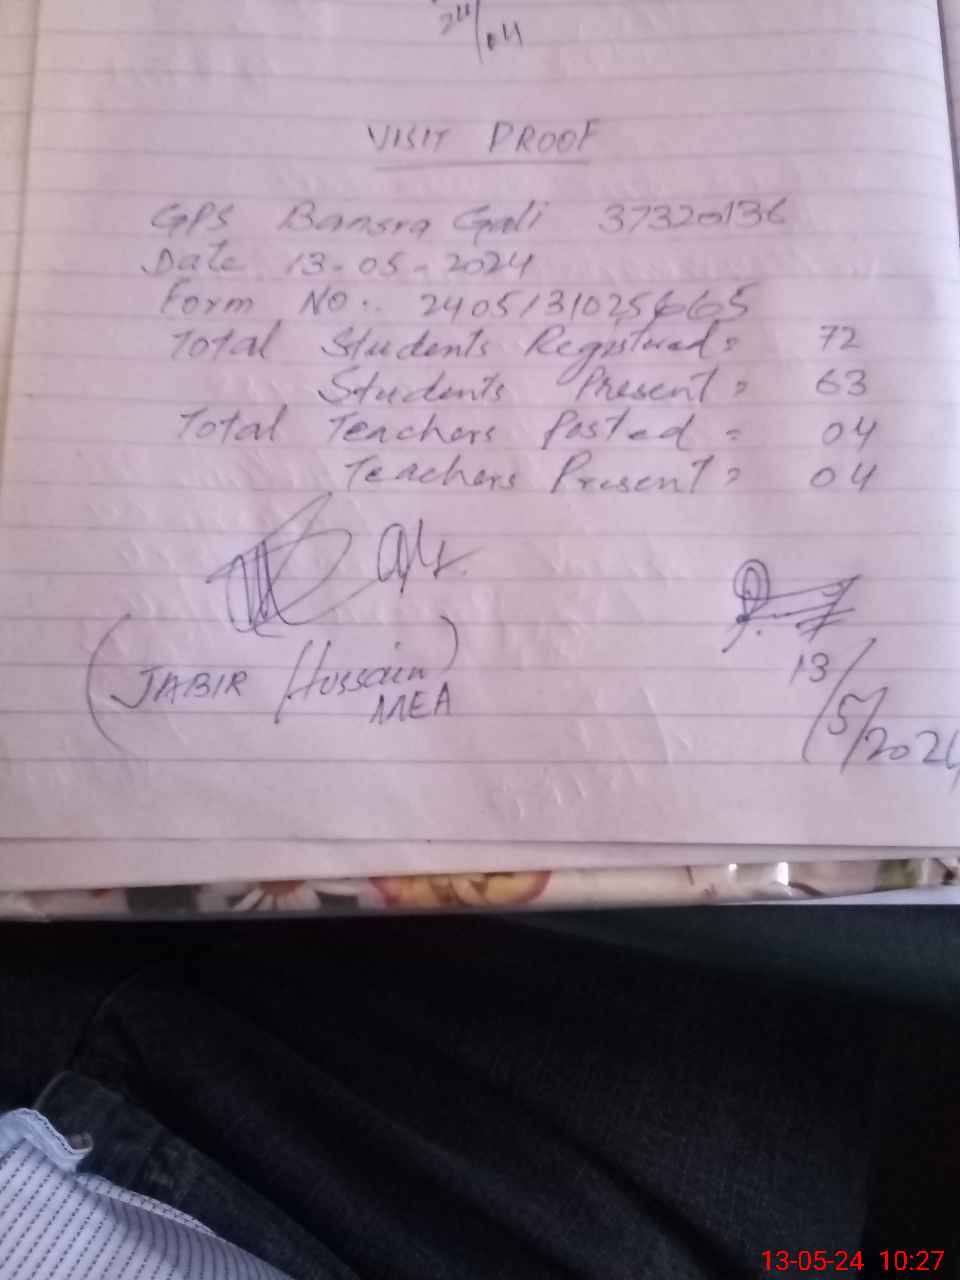 24/04
VISIT PROOF
GPS Bansra Gali 37320136
Date 13-05-2024
Form NO:. 2405131025665
Total Students Registured = 72
Students Present = 63
Total Teachers Posted = 04
Teachers Present = 04
(JABIR Hussain)
MEA
13/5/2024
13-05-24 10:27